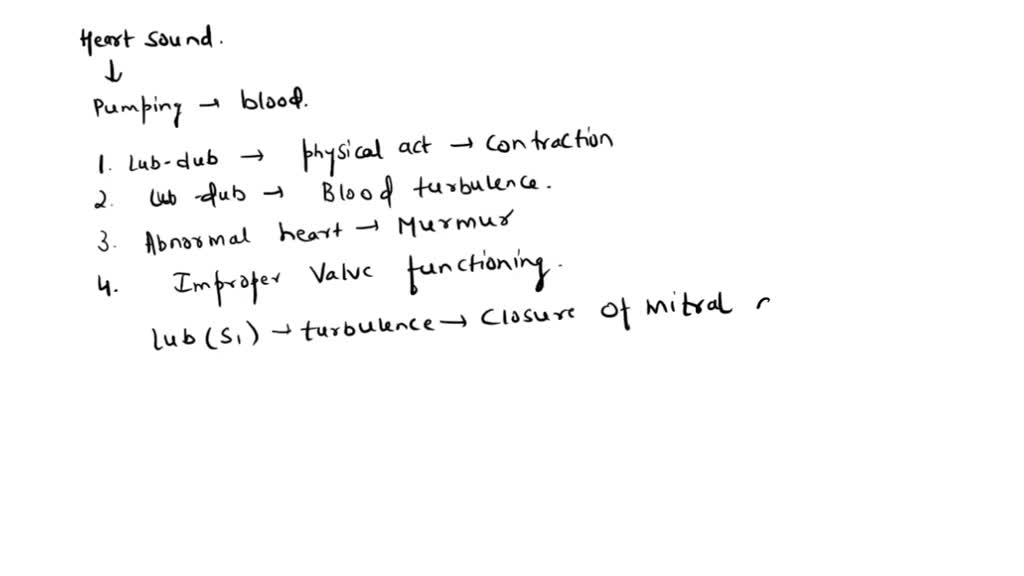 Heart sound.
↓
Pumping → blood.
1. Lub-dub → physical act → contraction
2. Lub-dub → Blood turbulence.
3. Abnormal heart → Murmur
4. Improper Valve functioning.
lub (S1) → turbulence → Closure of mitral